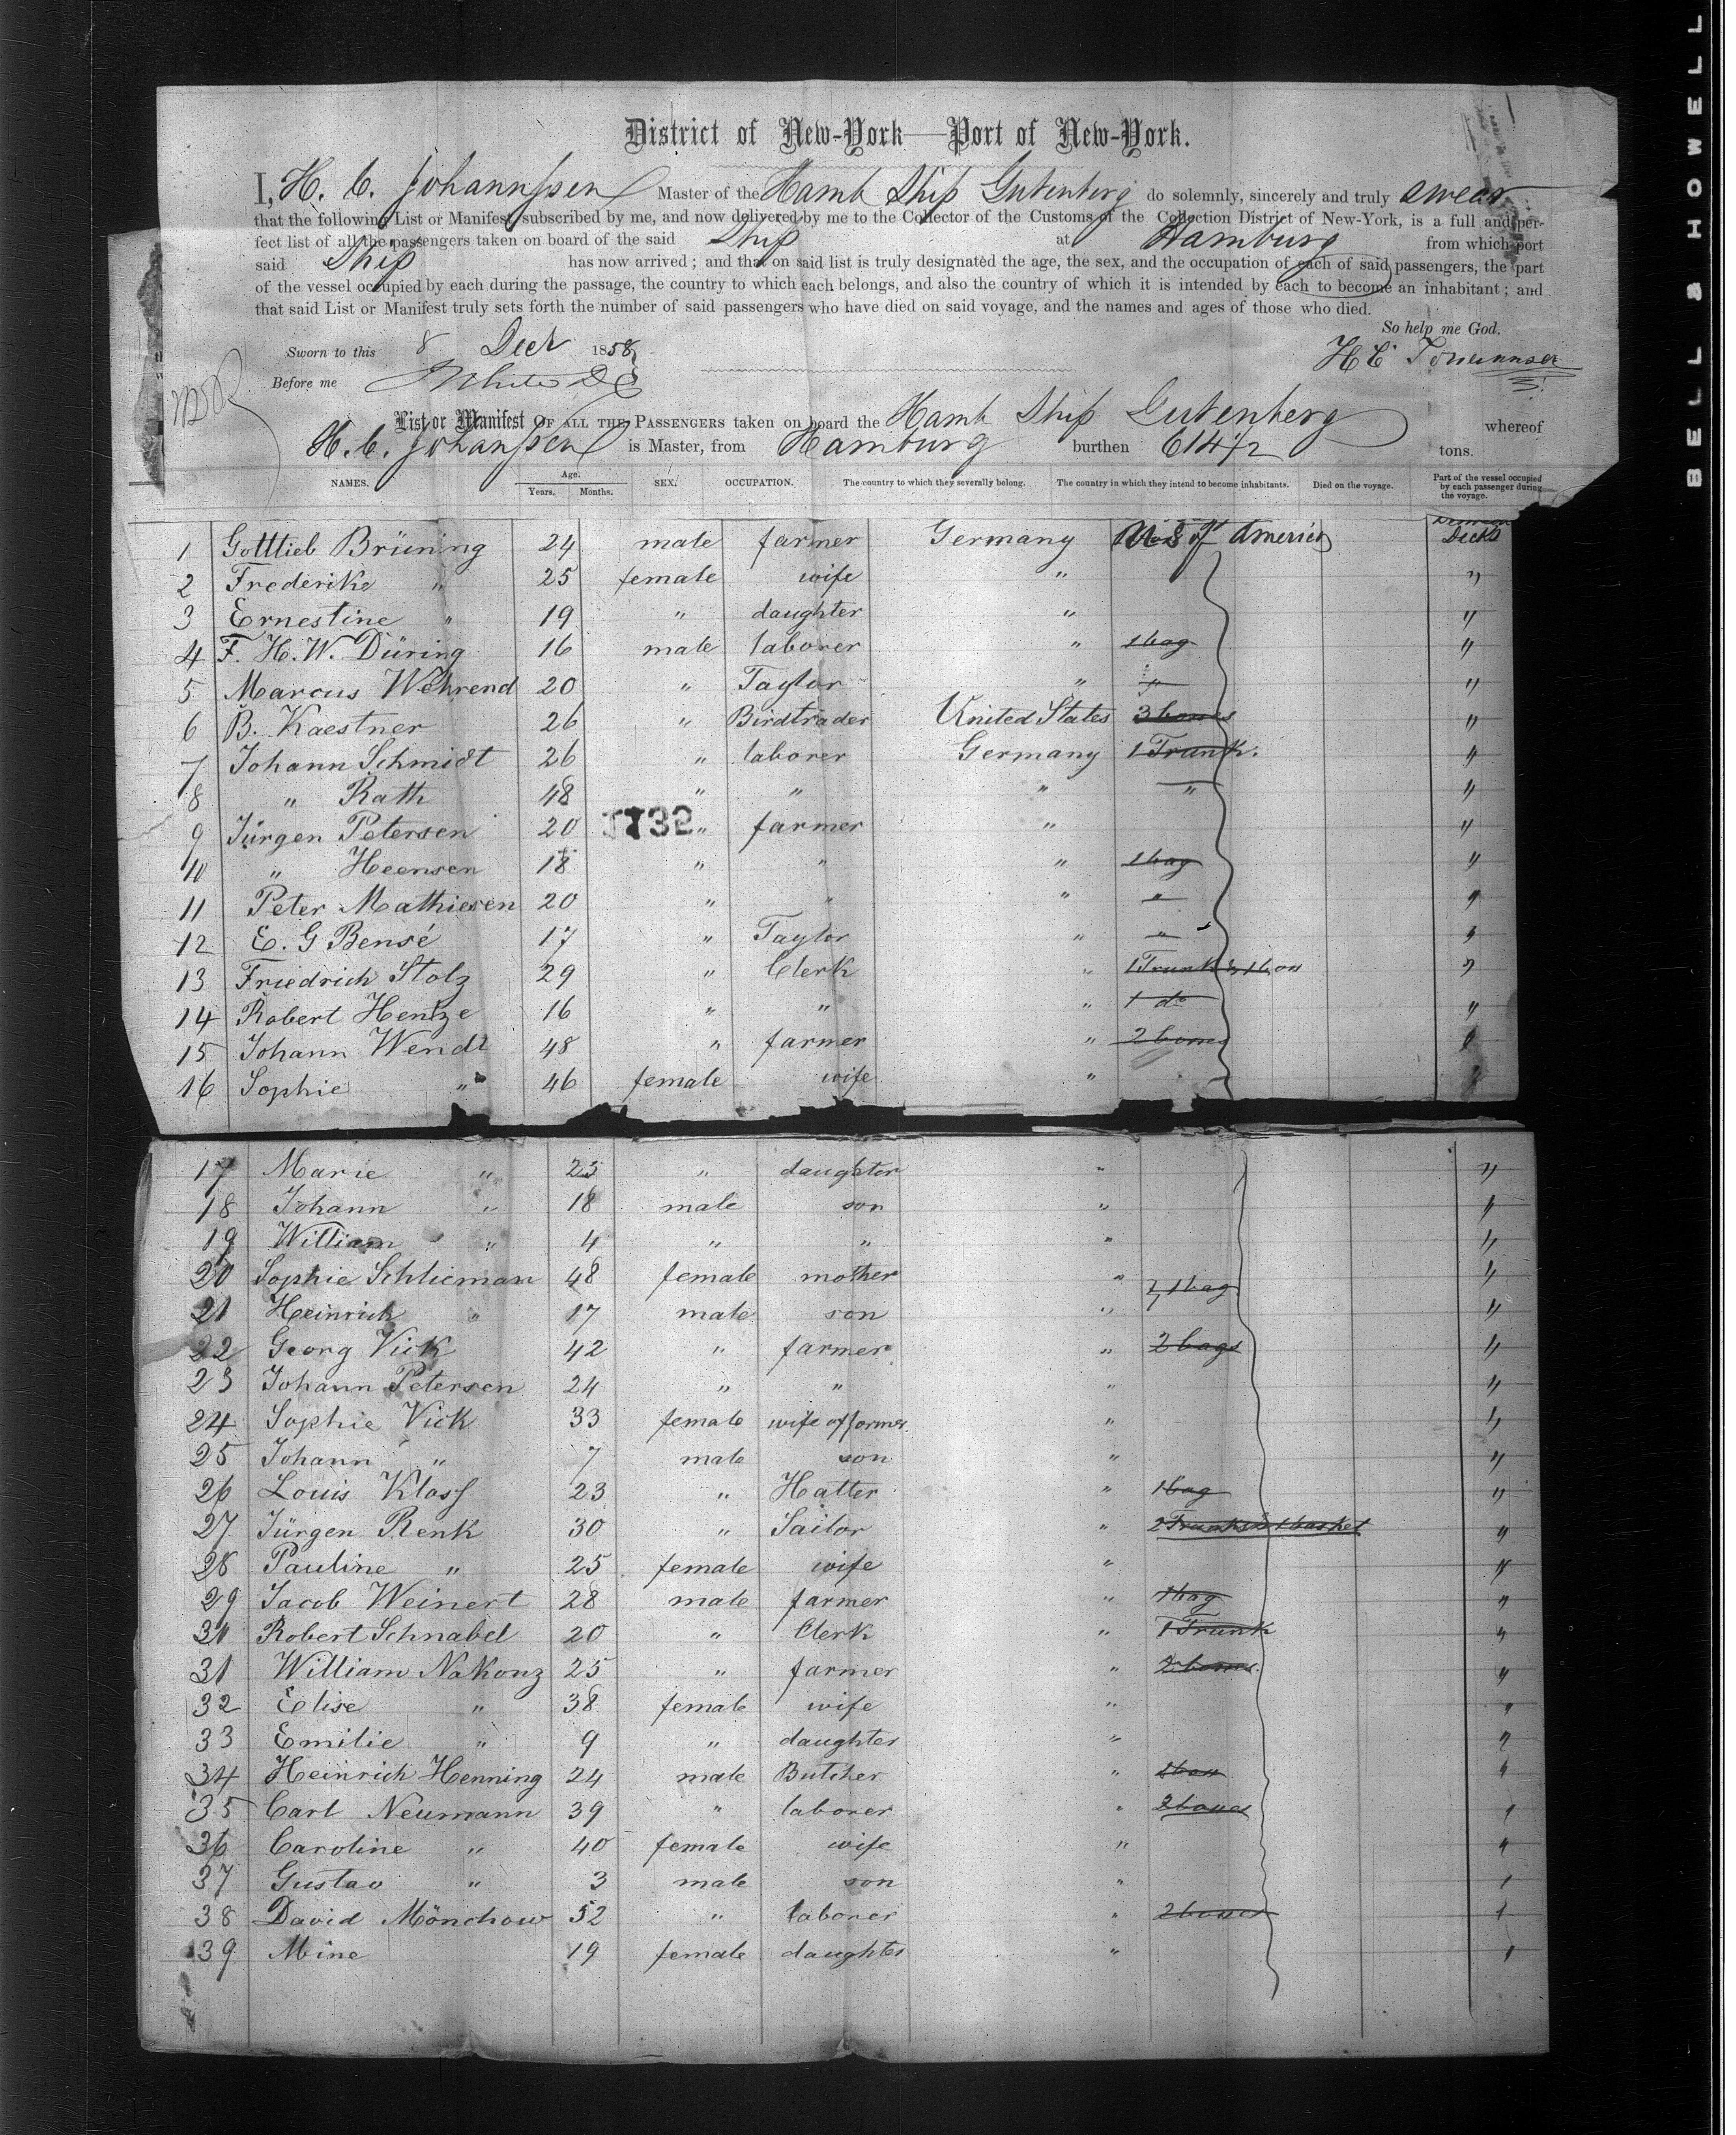 BELL & HOWELL
District of New-York—Port of New-York.
I, H. C. Johannssen Master of the Hamb Ship Gutenberg do solemnly, sincerely and truly swear
that the following List or Manifest, subscribed by me, and now delivered by me to the Collector of the Customs of the Collection District of New-York, is a full and per-
fect list of all the passengers taken on board of the said Ship at Hamburg from which port
said Ship has now arrived; and that on said list is truly designated the age, the sex, and the occupation of each of said passengers, the part
of the vessel occupied by each during the passage, the country to which each belongs, and also the country of which it is intended by each to become an inhabitant; and
that said List or Manifest truly sets forth the number of said passengers who have died on said voyage, and the names and ages of those who died.
So help me God.
Sworn to this 8 Decr 1858
H C Johannssen
Before me White
List or Manifest OF ALL THE PASSENGERS taken on board the Hamb Ship Gutenberg whereof
H. C. Johanssen is Master, from Hamburg burthen 614 1/2 tons.
NAMES. Age. Years. Months. SEX. OCCUPATION. The country to which they severally belong. The country in which they intend to become inhabitants. Died on the voyage. Part of the vessel occupied by each passenger during the voyage.
1 Gottlieb Brüning 24 male farmer Germany U S of America Decks
2 Frederike " 25 female wife " "
3 Ernestine " 19 " daughter " "
4 F. H. W. Düring 16 male laborer " 1 bag "
5 Marcus Wehrend 20 " Taylor " " "
6 B. Kaestner 26 " Birdtrader United States 3 boxes "
7 Johann Schmidt 26 " laborer Germany 1 Trunk. "
8 " Rath 48 " " " " "
9 Jürgen Petersen 20 " farmer " "
1732
10 " Heensen 18 " " " 1 bag "
11 Peter Mathiesen 20 " " " " "
12 E. G Bensé 17 " Taylor " " "
13 Friedrich Stolz 29 " Clerk " 1 Trunk & 1 box "
14 Robert Hentze 16 " " " 1 do "
15 Johann Wendt 48 " farmer " 2 boxes "
16 Sophie " 46 female wife " "
17 Marie " 25 " daughter " "
18 Johann " 18 male son " "
19 William " 4 " " " "
20 Sophie Schlieman 48 female mother " 1 bag "
21 Heinrich " 17 male son " "
22 Georg Vick 42 " farmer " 2 bags "
23 Johann Petersen 24 " " " "
24 Sophie Vick 33 female wife of former " "
25 Johann " 7 male son " "
26 Louis Klass 23 " Hatter " 1 bag "
27 Jürgen Renk 30 " Sailor " 2 Trunks & 1 basket "
28 Pauline " 25 female wife " "
29 Jacob Weinert 28 male farmer " 1 bag "
30 Robert Schnabel 20 " Clerk " 1 Trunk "
31 William Nakonz 25 " farmer " 2 boxes. "
32 Elise " 38 female wife " "
33 Emilie " 9 " daughter " "
34 Heinrich Henning 24 male Butcher " 1 box "
35 Carl Neumann 39 " laborer " 2 boxes "
36 Caroline " 40 female wife " "
37 Gustav " 3 male son " "
38 David Mönchow 52 " laborer " 2 boxes "
39 Mine 19 female daughter " "